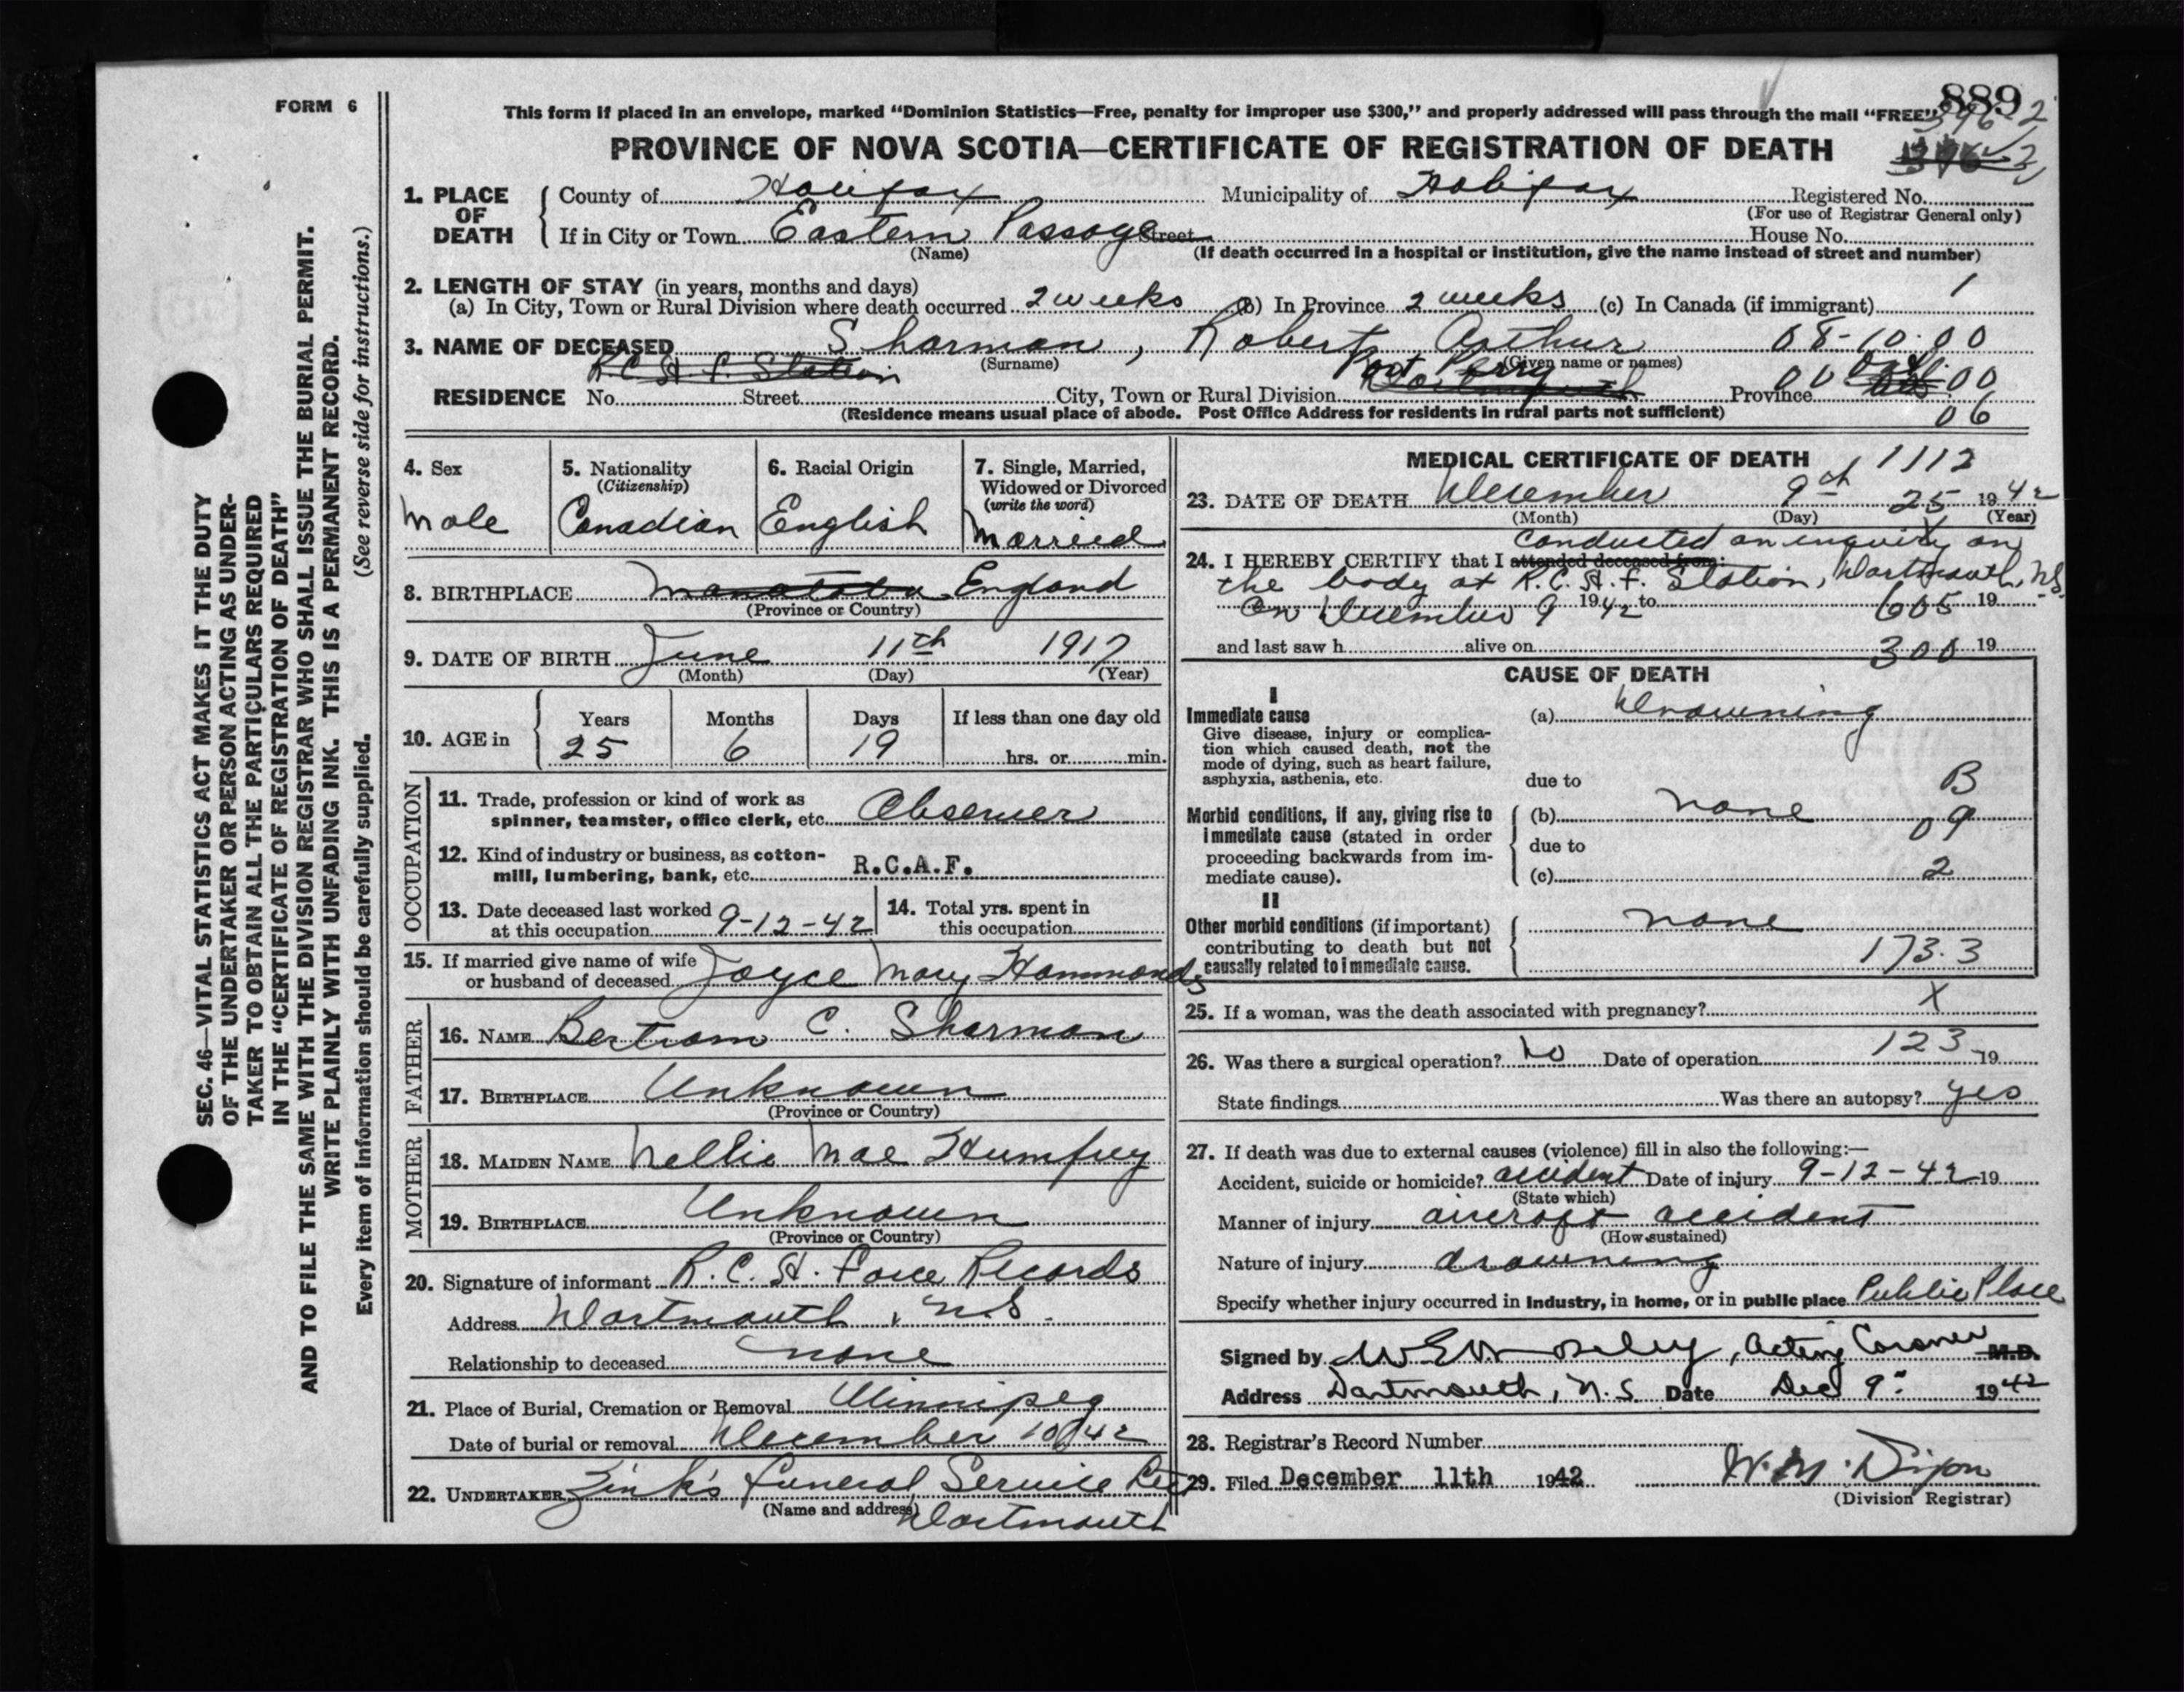 FORM 6
This form if placed in an envelope, marked “Dominion Statistics—Free, penalty for improper use $300,” and properly addressed will pass through the mail “FREE”
889
PROVINCE OF NOVA SCOTIA—CERTIFICATE OF REGISTRATION OF DEATH
1. PLACE OF DEATH
County of Halifax Municipality of Halifax Registered No.
(For use of Registrar General only)
If in City or Town Eastern Passage Street House No.
(Name) (If death occurred in a hospital or institution, give the name instead of street and number)
2. LENGTH OF STAY (in years, months and days)
(a) In City, Town or Rural Division where death occurred 2 weeks (b) In Province 2 weeks (c) In Canada (if immigrant) /
3. NAME OF DECEASED Sharman, Robert Arthur 08-10-00
(Surname) (Given name or names)
R.C.A.F. Station Port Perry
RESIDENCE No. Street City, Town or Rural Division Province 00 00
(Residence means usual place of abode. Post Office Address for residents in rural parts not sufficient) 06
4. Sex
Male
5. Nationality
(Citizenship)
Canadian
6. Racial Origin
English
7. Single, Married, Widowed or Divorced
(write the word)
Married
8. BIRTHPLACE Manatoba England
(Province or Country)
9. DATE OF BIRTH June 11th 1917
(Month) (Day) (Year)
10. AGE in
Years Months Days If less than one day old
25 6 19 hrs. or min.
OCCUPATION
11. Trade, profession or kind of work as
spinner, teamster, office clerk, etc. Observer
12. Kind of industry or business, as cotton-
mill, lumbering, bank, etc. R.C.A.F.
13. Date deceased last worked
at this occupation 9-12-42
14. Total yrs. spent in
this occupation
15. If married give name of wife
or husband of deceased Joyce Mary Hammonds
FATHER
16. NAME Bertram C. Sharman
17. BIRTHPLACE Unknown
(Province or Country)
MOTHER
18. MAIDEN NAME Nellie Mae Humfrey
19. BIRTHPLACE Unknown
(Province or Country)
20. Signature of informant R.C.A. Force Records
Address Dartmouth, N.S.
Relationship to deceased none
21. Place of Burial, Cremation or Removal Winnipeg
Date of burial or removal December 10/42
22. UNDERTAKER Zink's Funeral Service
(Name and address) Dartmouth
MEDICAL CERTIFICATE OF DEATH 1112
23. DATE OF DEATH December 9th 25 1942
(Month) (Day) (Year)
conducted an enquiry on
24. I HEREBY CERTIFY that I attended deceased from:
the body at R.C.A.F. Station, Dartmouth, N.S.
On December 9 1942 to 605 19
and last saw h alive on 300 19
CAUSE OF DEATH
I
Immediate cause
Give disease, injury or complica-
tion which caused death, not the
mode of dying, such as heart failure,
asphyxia, asthenia, etc.
(a) Drowning
due to B
Morbid conditions, if any, giving rise to
immediate cause (stated in order
proceeding backwards from im-
mediate cause).
(b) none 09
due to
(c) 2
II
Other morbid conditions (if important)
contributing to death but not
causally related to immediate cause.
none
173.3
25. If a woman, was the death associated with pregnancy? X
26. Was there a surgical operation? No Date of operation 123 19
State findings Was there an autopsy? yes
27. If death was due to external causes (violence) fill in also the following:—
Accident, suicide or homicide? accident Date of injury 9-12-42 19
(State which)
Manner of injury aircraft accident
(How sustained)
Nature of injury drowning
Specify whether injury occurred in industry, in home, or in public place Public Place
Signed by Acting Coroner M.D.
Address Dartmouth, N.S. Date Dec 9 1942
28. Registrar's Record Number
29. Filed December 11th 1942 W. M. Dixon
(Division Registrar)
SEC. 46—VITAL STATISTICS ACT MAKES IT THE DUTY
OF THE UNDERTAKER OR PERSON ACTING AS UNDER-
TAKER TO OBTAIN ALL THE PARTICULARS REQUIRED
IN THE “CERTIFICATE OF REGISTRATION OF DEATH”
AND TO FILE THE SAME WITH THE DIVISION REGISTRAR WHO SHALL ISSUE THE BURIAL PERMIT.
WRITE PLAINLY WITH UNFADING INK. THIS IS A PERMANENT RECORD.
Every item of information should be carefully supplied. (See reverse side for instructions.)